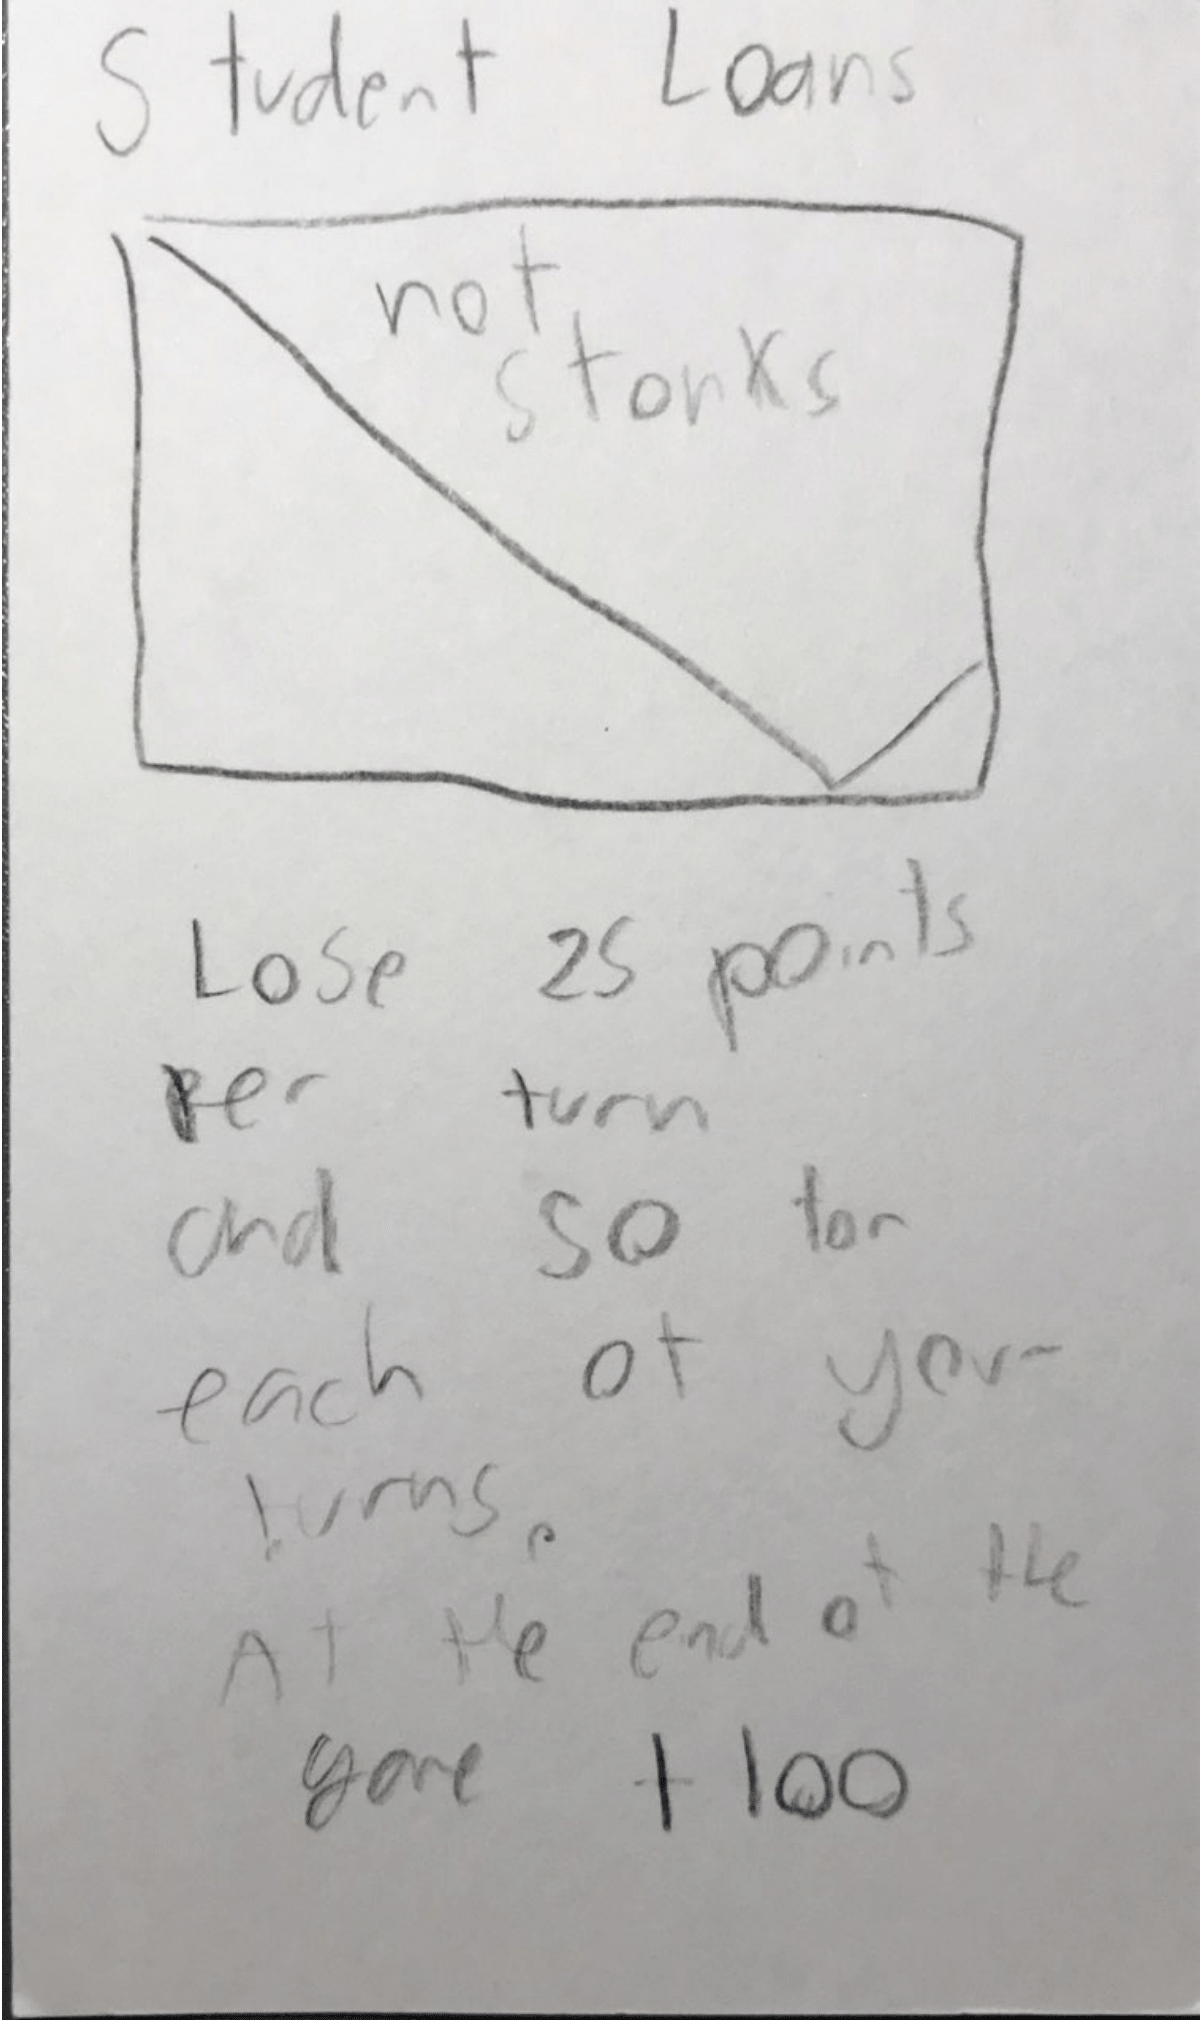 Student Loans
not
stonks
Lose 25 points
per turn
and 50 for
each of your
turns.
At the end of the
game +100